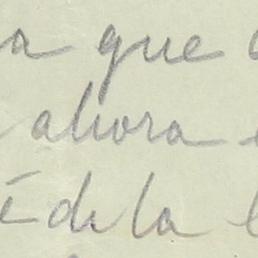 a que
ahora
é de la